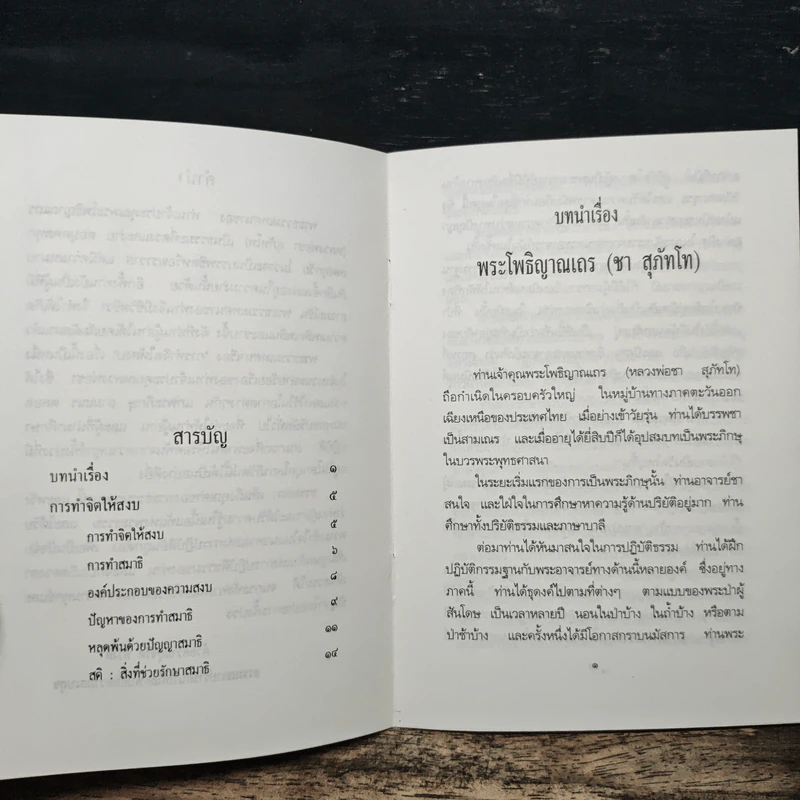 สารบัญ
บทนำเรื่อง ๑
การทำจิตให้สงบ ๕
การทำจิตให้สงบ ๕
การทำสมาธิ ๖
องค์ประกอบของความสงบ ๘
ปัญหาของการทำสมาธิ ๙
หลุดพ้นด้วยปัญญาสมาธิ ๑๑
สติ : สิ่งที่ช่วยรักษาสมาธิ ๑๔
บทนำเรื่อง
พระโพธิญาณเถร (ชา สุภัทโท)
ท่านเจ้าคุณพระโพธิญาณเถร (หลวงพ่อชา สุภัทโท)
ถือกำเนิดในครอบครัวใหญ่ ในหมู่บ้านทางภาคตะวันออก
เฉียงเหนือของประเทศไทย เมื่อย่างเข้าวัยรุ่น ท่านได้บรรพชา
เป็นสามเณร และเมื่ออายุได้ยี่สิบปีก็ได้อุปสมบทเป็นพระภิกษุ
ในบวรพระพุทธศาสนา
ในระยะเริ่มแรกของการเป็นพระภิกษุนั้น ท่านอาจารย์ชา
สนใจ และใฝ่ใจในการศึกษาหาความรู้ด้านปริยัติอยู่มาก ท่าน
ศึกษาทั้งปริยัติธรรมและภาษาบาลี
ต่อมาท่านได้หันมาสนใจในการปฏิบัติธรรม ท่านได้ฝึก
ปฏิบัติกรรมฐานกับพระอาจารย์ทางด้านนี้หลายองค์ ซึ่งอยู่ทาง
ภาคนี้ ท่านได้ธุดงค์ไปตามที่ต่างๆ ตามแบบของพระป่าผู้
สันโดษ เป็นเวลาหลายปี นอนในป่าบ้าง ในถ้ำบ้าง หรือตาม
ป่าช้าบ้าง และครั้งหนึ่งได้มีโอกาสกราบนมัสการ ท่านพระ
๑